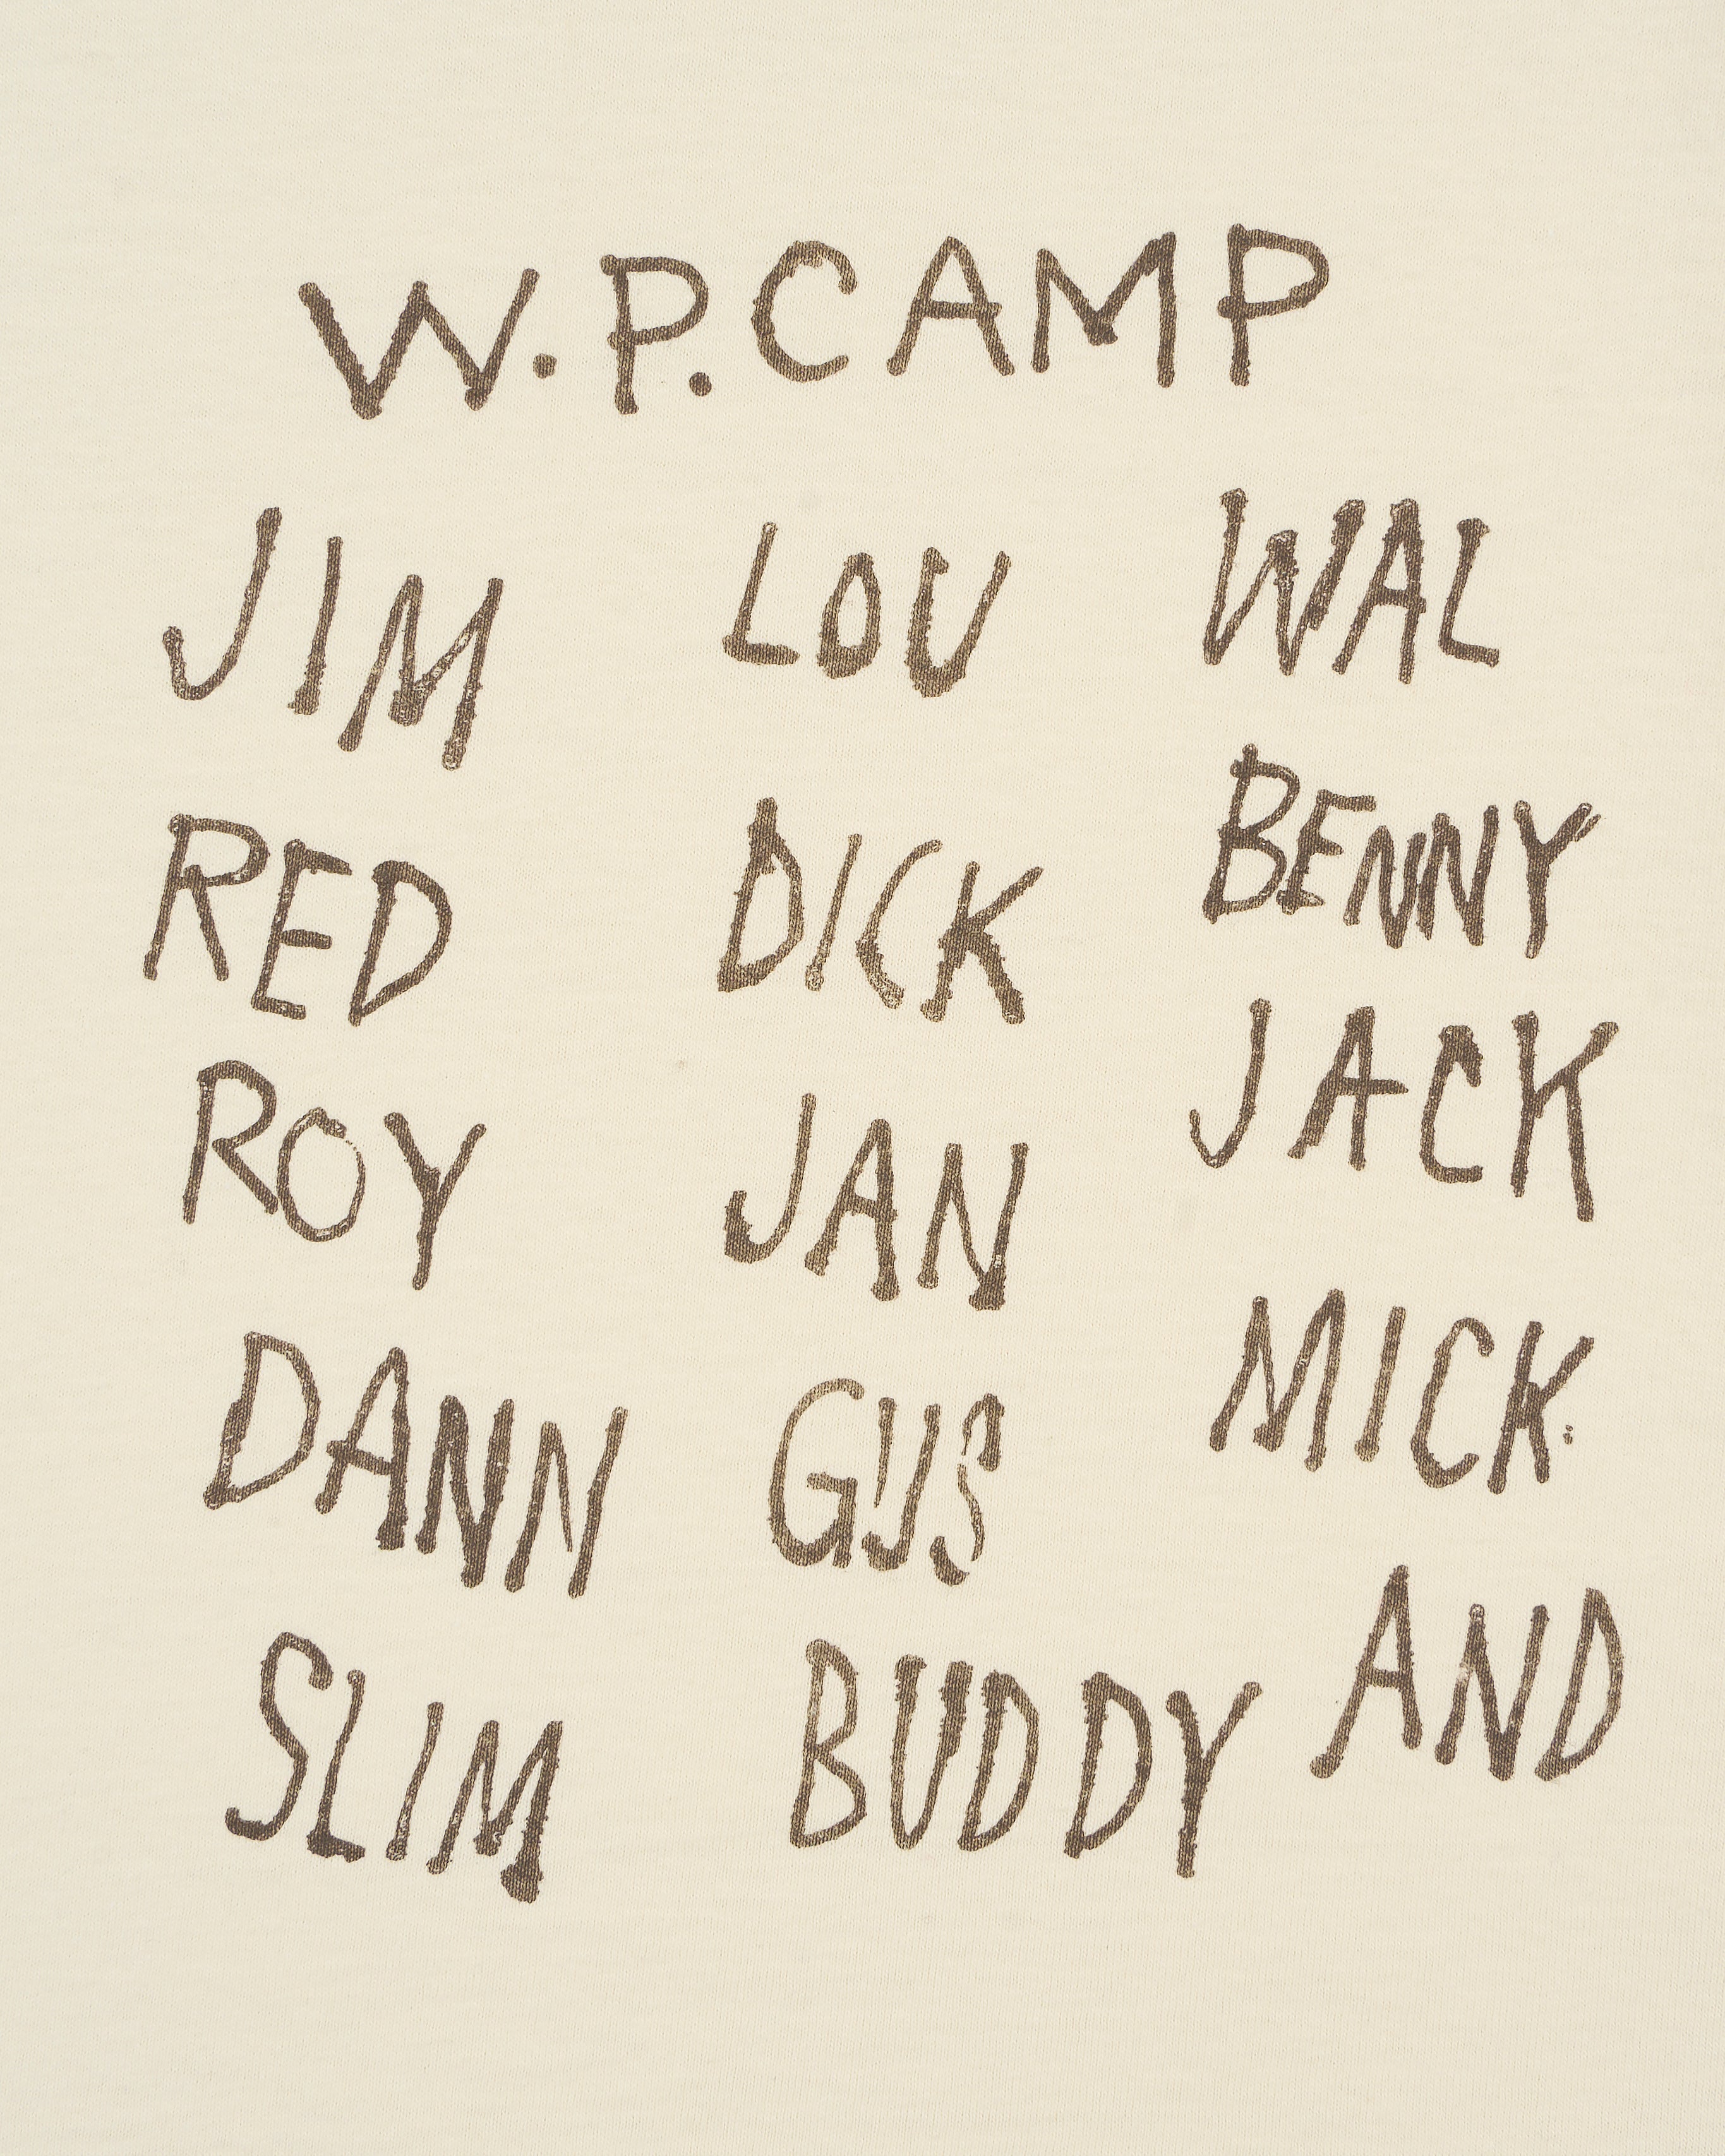 W.P.CAMP
JIM LOU WAL
RED DICK BENNY
ROY JAN JACK
DANN GUS MICK.
SLIM BUDDY AND